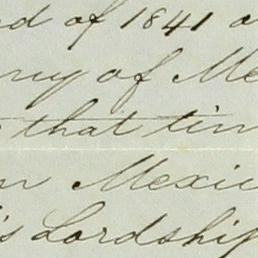 d of 1841
ny of Me
that tim
n Mexic
s Lordship